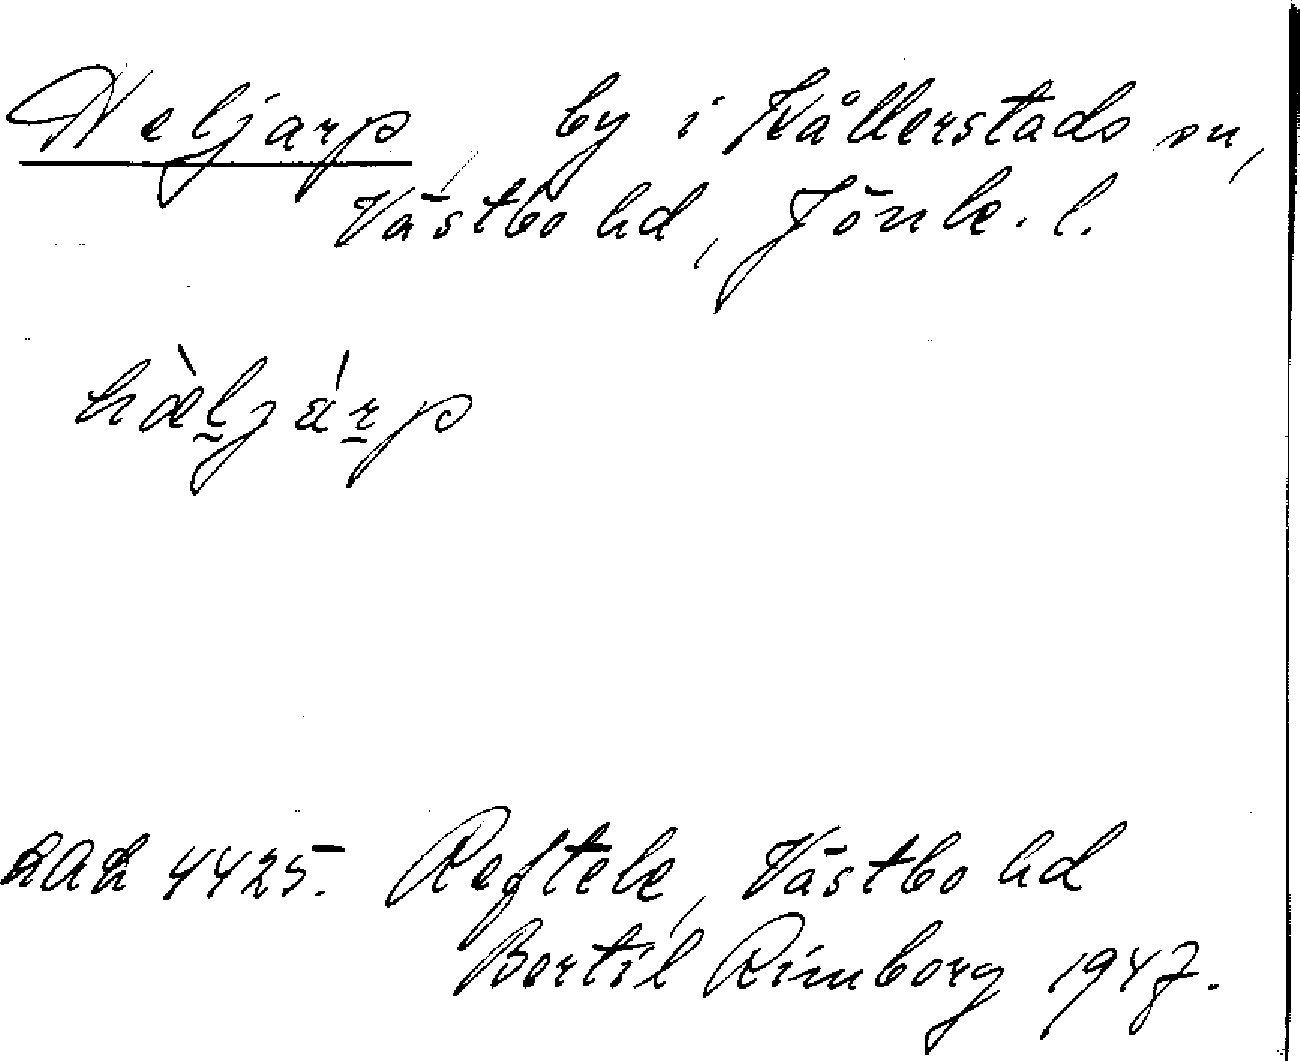 Heljarp, by i Kållerstads sn,
Västbo hd, Jönk. l.
hæ̀ljárp
LAL 4425. Reftele, Västbo hd
Bertil Rimborg 1947.